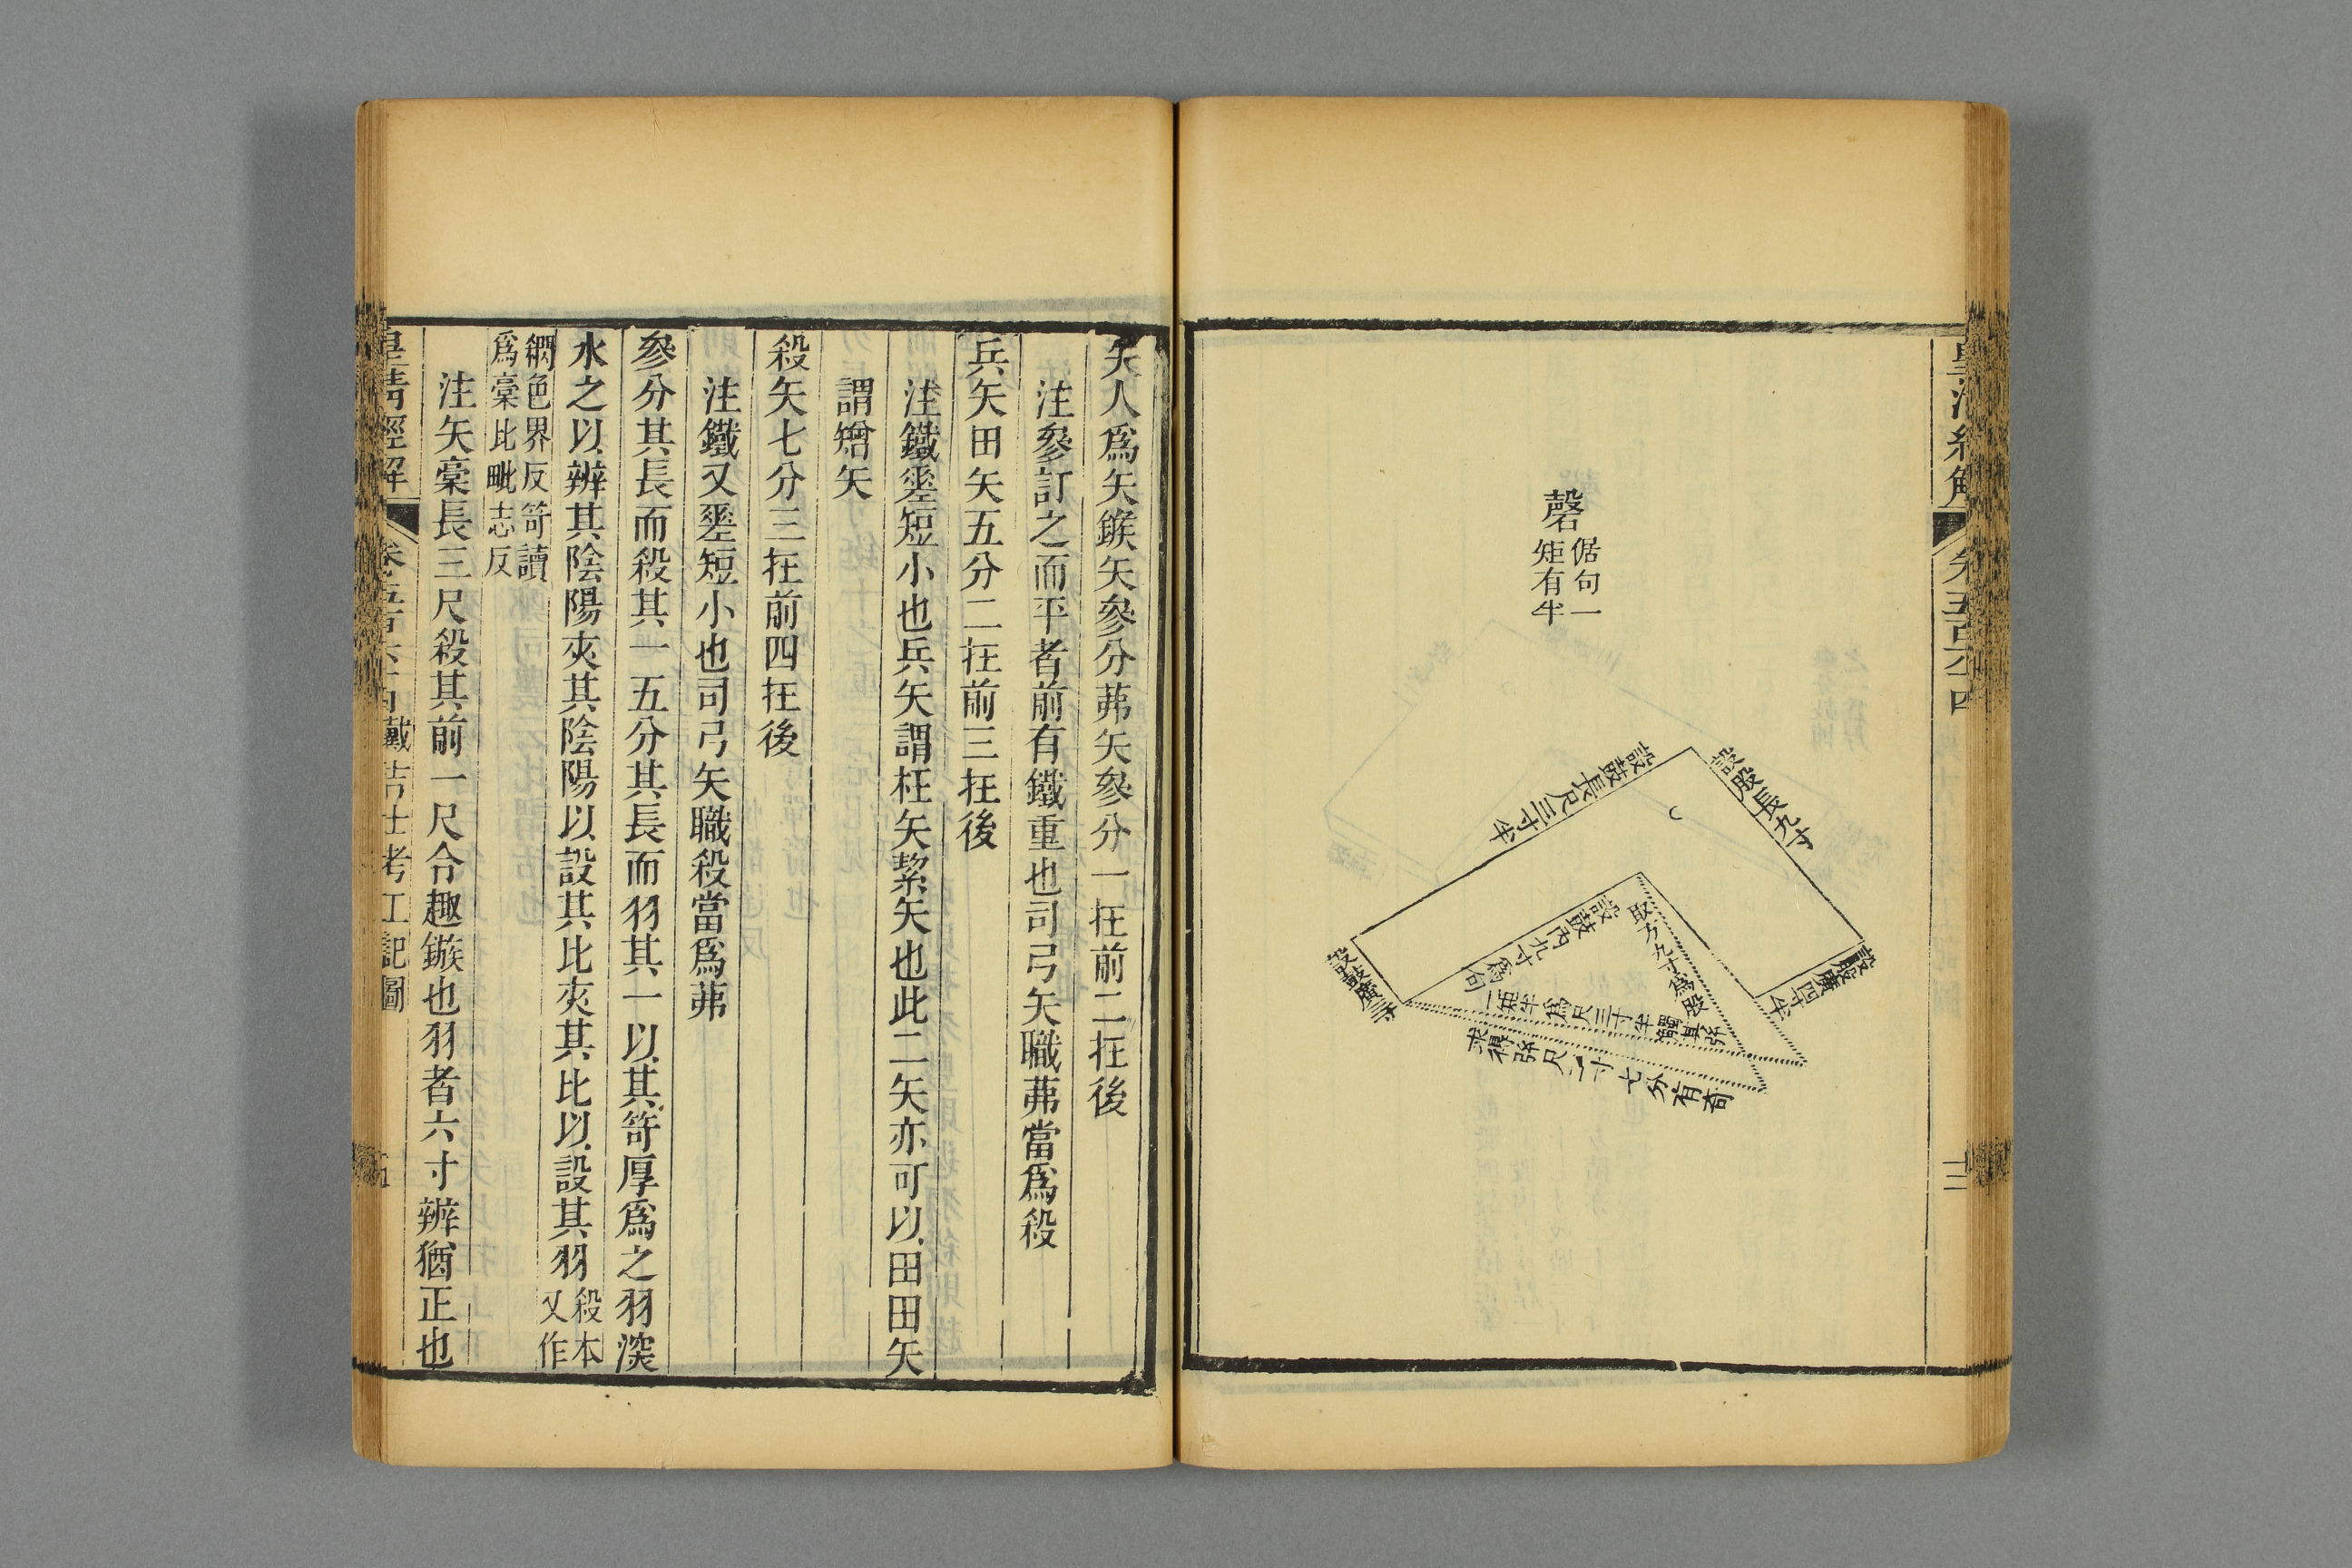 皇清經解
卷五百六十四
磬
倨句一
矩有半
設股長九寸
設鼓長尺三寸半
設股廣四寸半
設鼓廣三寸
取方九寸爲股
設鼓內九寸爲句
一矩半爲尺三寸半觸其弦
求得弦尺二寸七分有奇
矢人爲矢鍭矢參分茀矢參分一在前二在後
注參訂之而平者前有鐵重也司弓矢職茀當爲殺
兵矢田矢五分二在前三在後
注鐵差短小也兵矢謂枉矢絜矢也此二矢亦可以田田矢
謂矰矢
殺矢七分三在前四在後
注鐵又差短小也司弓矢職殺當爲茀
參分其長而殺其一五分其長而羽其一以其笴厚爲之羽深
水之以辨其陰陽夾其陰陽以設其比夾其比以設其羽
殺本
又作
䌨色界反笴讀
爲稾比毗志反
注矢稾長三尺殺其前一尺令趣鏃也羽者六寸辨猶正也
皇清經解
卷五百六十四
戴吉士考工記圖